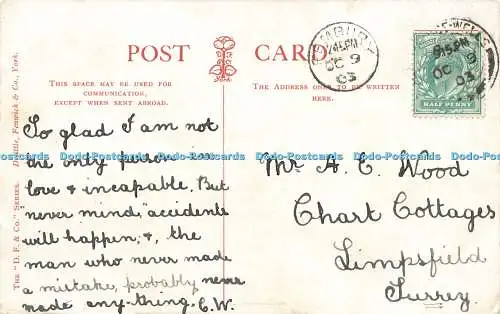 POST CARD
THIS SPACE MAY BE USED FOR
COMMUNICATION,
EXCEPT WHEN SENT ABROAD.
THE ADDRESS ONLY TO BE WRITTEN
HERE.
THE "D. F. & Co." SERIES. Delittle, Fenwick & Co., York.
So glad I am not
the only person
love & incapable. But
"never mind," "accidents
will happen", &, the
man who never made
a mistake, probably never
made any-thing. C.W.
Mr A. C. Wood
Chart Cottages
Limpsfield
Surrey.
7.45 PM
OC 9
03
WELLS
9.15 PM
OC 9
03
HALF PENNY
Dodo-Postcards Dodo-Postcards Dodo-Postcards Dodo-Postcards Dodo-Postcards Dodo-Postcards